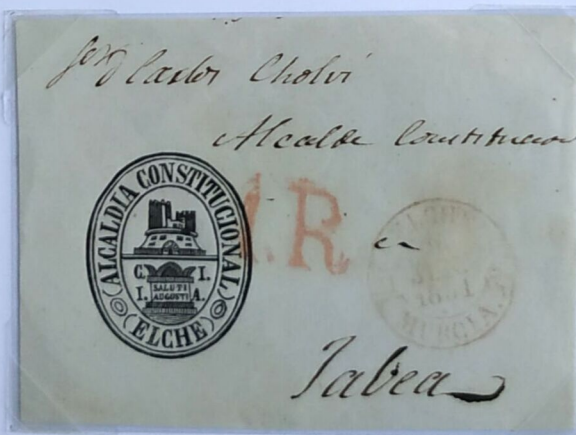 Sor. D. Carlos Cholvi
Alcalde Constitucion
ALCALDIA CONSTITUCIONAL
C. I.
I. A.
SALUTI
AUGUSTI
ELCHE
R
en
MURCIA.
Jabea